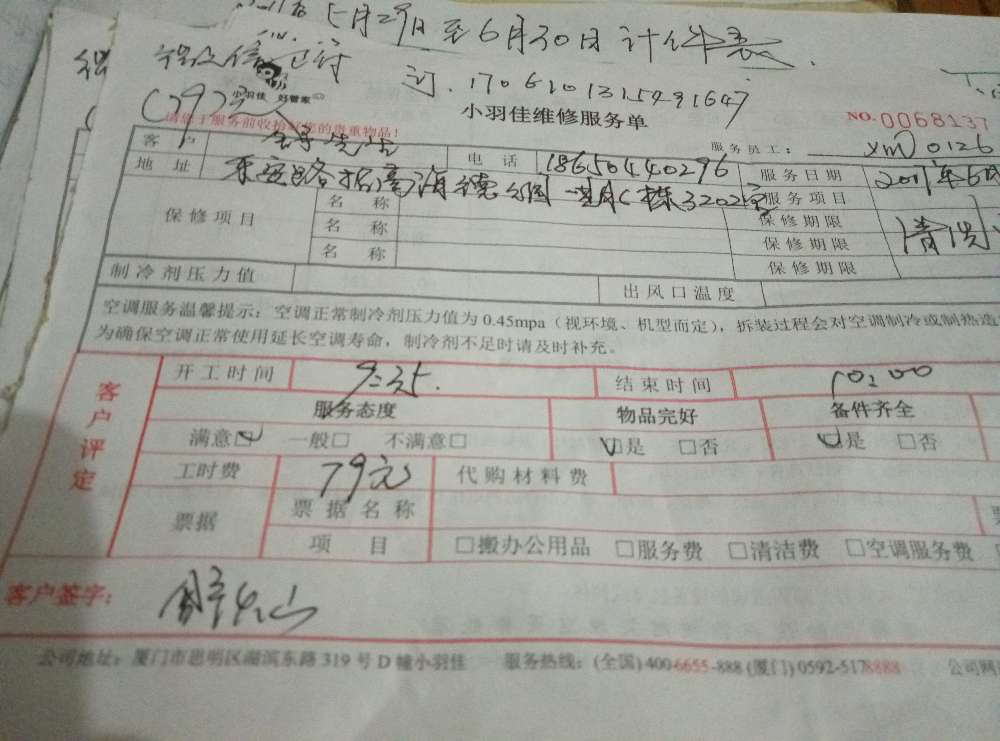 5月29日至6月30日计件表
订.1706101315491647
小羽佳 好管家
小羽佳维修服务单
NO.0068137
请您于服务前收拾好您的贵重物品!
服务员工: xm0126
客户 先生 电话 18650440296 服务日期 2017年6月
地址 海德公园一期C栋3202室 服务项目 清洗
保修项目 名称 保修期限
名称 保修期限
名称 保修期限
制冷剂压力值 出风口温度
空调服务温馨提示:空调正常制冷剂压力值为0.45mpa(视环境、机型而定),拆装过程会对空调制冷或制热造
为确保空调正常使用延长空调寿命,制冷剂不足时请及时补充。
客户评定
开工时间 9:35. 结束时间 10:00
服务态度 物品完好 备件齐全
满意☑ 一般□ 不满意□ ☑是 □否 ☑是 □否
工时费 79元 代购材料费
票据 票据名称
项目 □搬办公用品 □服务费 □清洁费 □空调服务费
客户签字:
公司地址:厦门市思明区湖滨东路319号D幢小羽佳 服务热线:(全国)400-6655-888(厦门)0592-5178888 公司网